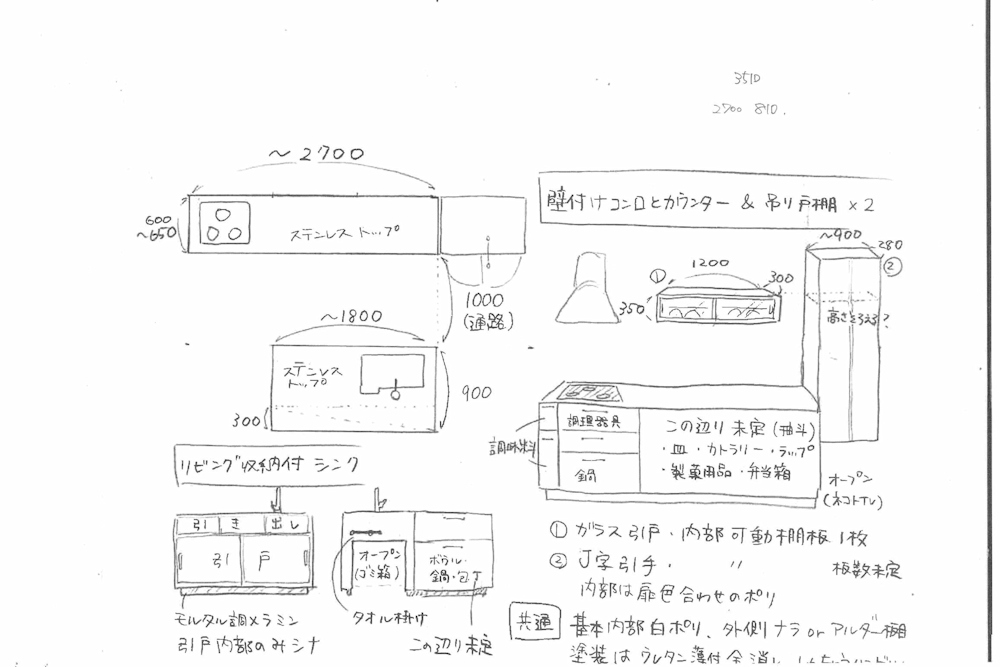 3510
2700 810.
〜2700
600
〜650
ステンレス トップ
1000
(通路)
〜1800
ステンレス
トップ
900
300
リビング収納付 シンク
引 き 出し
引 戸
モルタル調メラミン
引戸内部のみシナ
オーブン
(ゴミ箱)
ボウル・
鍋・包丁
タオル掛け
この辺り未定
壁付けコンロとカウンター & 吊り戸棚 ×2
① 1200
300
350
〜900
280
②
高さそろえる?
調味料
調理器具
鍋
この辺り 未定 (抽斗)
・皿・カトラリー・ラップ
・製菓用品・弁当箱
オープン
① ガラス引戸・内部可動棚板1枚
② J字引手・ 〃 板数未定
内部は扉色合わせのポリ
共通
基本内部白ポリ、外側ナラorアルダー
塗装は ウレタン